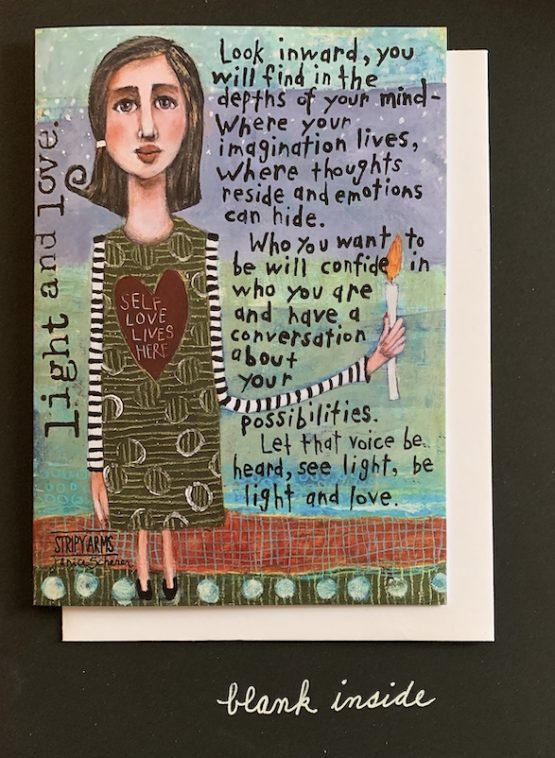 light and love.
Look inward, you
will find in the
depths of your mind-
Where your
imagination lives,
Where thoughts
reside and emotions
can hide.
Who you want to
be will confide in
who you are
and have a
conversation
about
your
possibilities.
Let that voice be
heard, see light, be
light and love.
SELF
LOVE
LIVES
HERE
STRIPY ARMS
Janice Scherer
blank inside